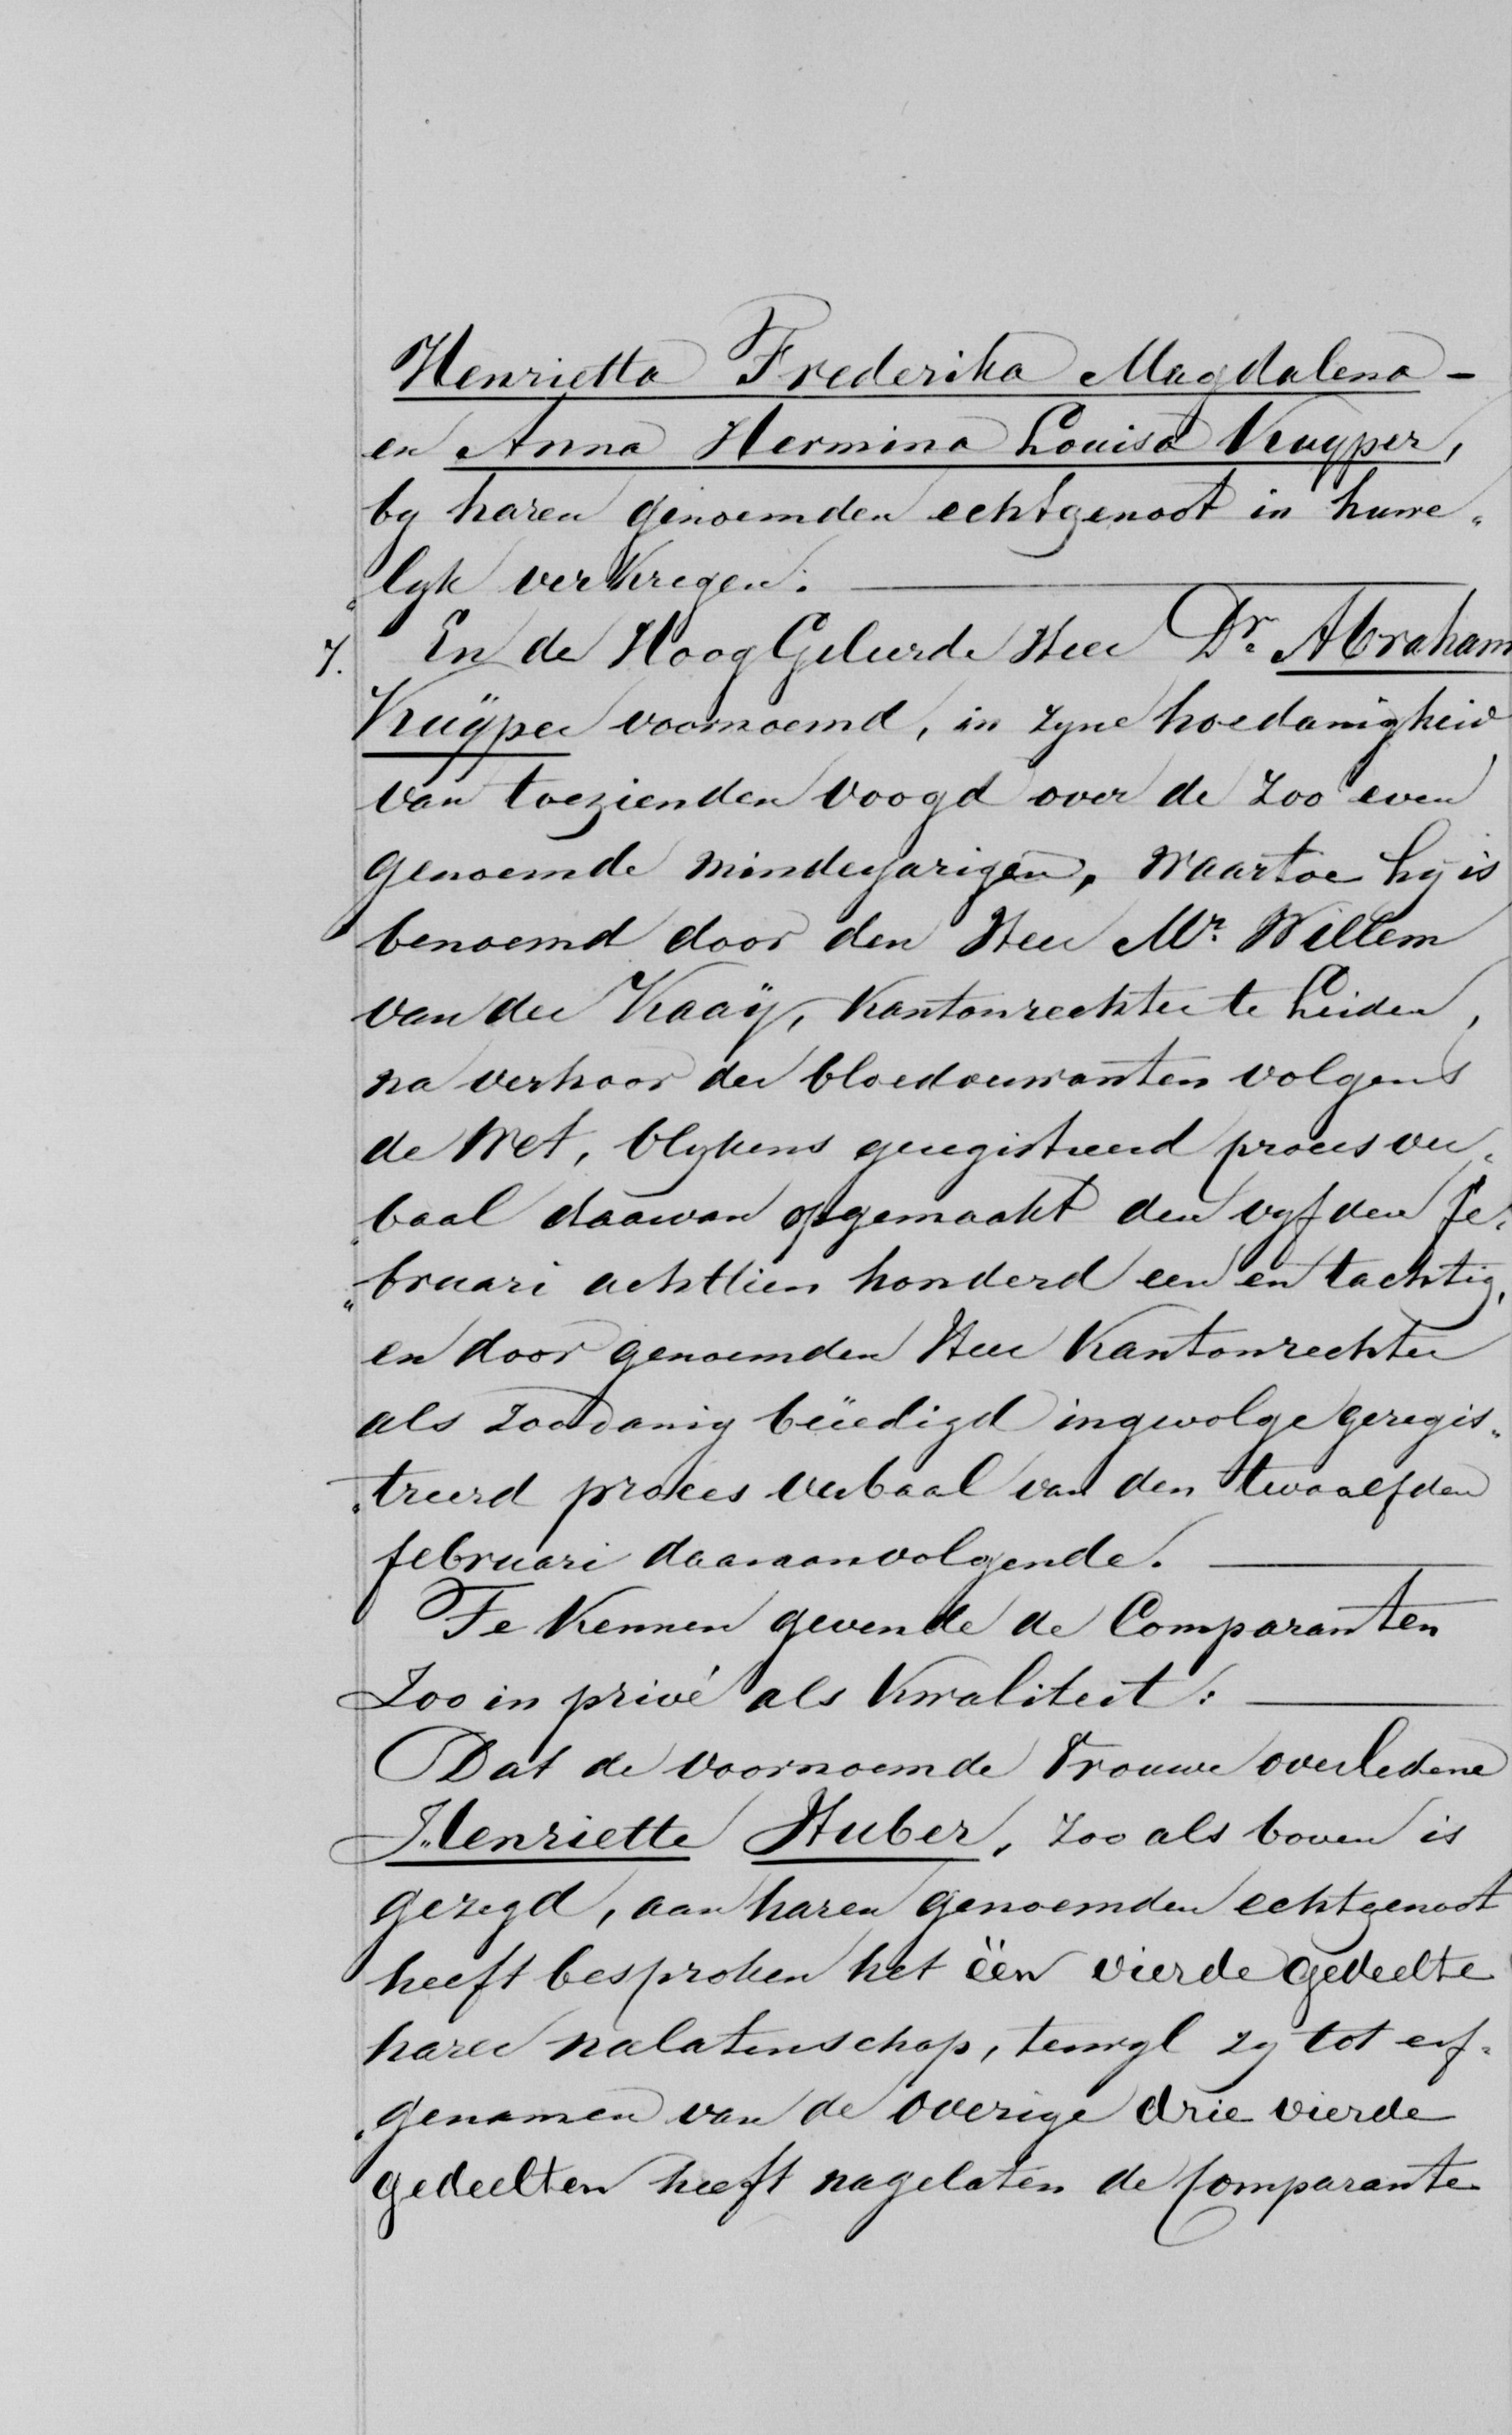 Henrietta Frederika Magdalena -
en Anna Hermina Louisa Kuyper,
by haren genoemden echtgenoot in huwe„
„lyk verkregen.
7. En de Hoog Geleerde Heer Dr. Abraham
Kuÿper voornoemd, in zyne hoedanigheid
van toezienden voogd over de zoo even
genoemde minderjarigen, waartoe hy is
benoemd door den Heer Mr. Willem
van der Kaaÿ, Kantonrechter te Leiden,
na verhoor der bloedverwanten volgens
de Wet, blykens geregistreerd proces ver„
„baal daarvan opgemaakt den vyfden Fe„
„bruari achttien honderd een en tachtig,
en door genoemden Heer Kantonrechter
als zoodanig beëedigd ingevolge geregis„
„treerd proces verbaal van den twaalfden
februari daaraanvolgende.
Te Kennen gevende de Comparanten
Zoo in privé als Kwaliteit:
Dat de voornoemde Vrouwe overledene
Henriette Huber, zoo als boven is
gezegd, aan haren genoemden echtgenoot
heeft besproken het één vierde gedeelte
harer nalatenschap, terwyl zy tot erf„
„genamen van de overige drie vierde
gedeelten heeft nagelaten de Comparante